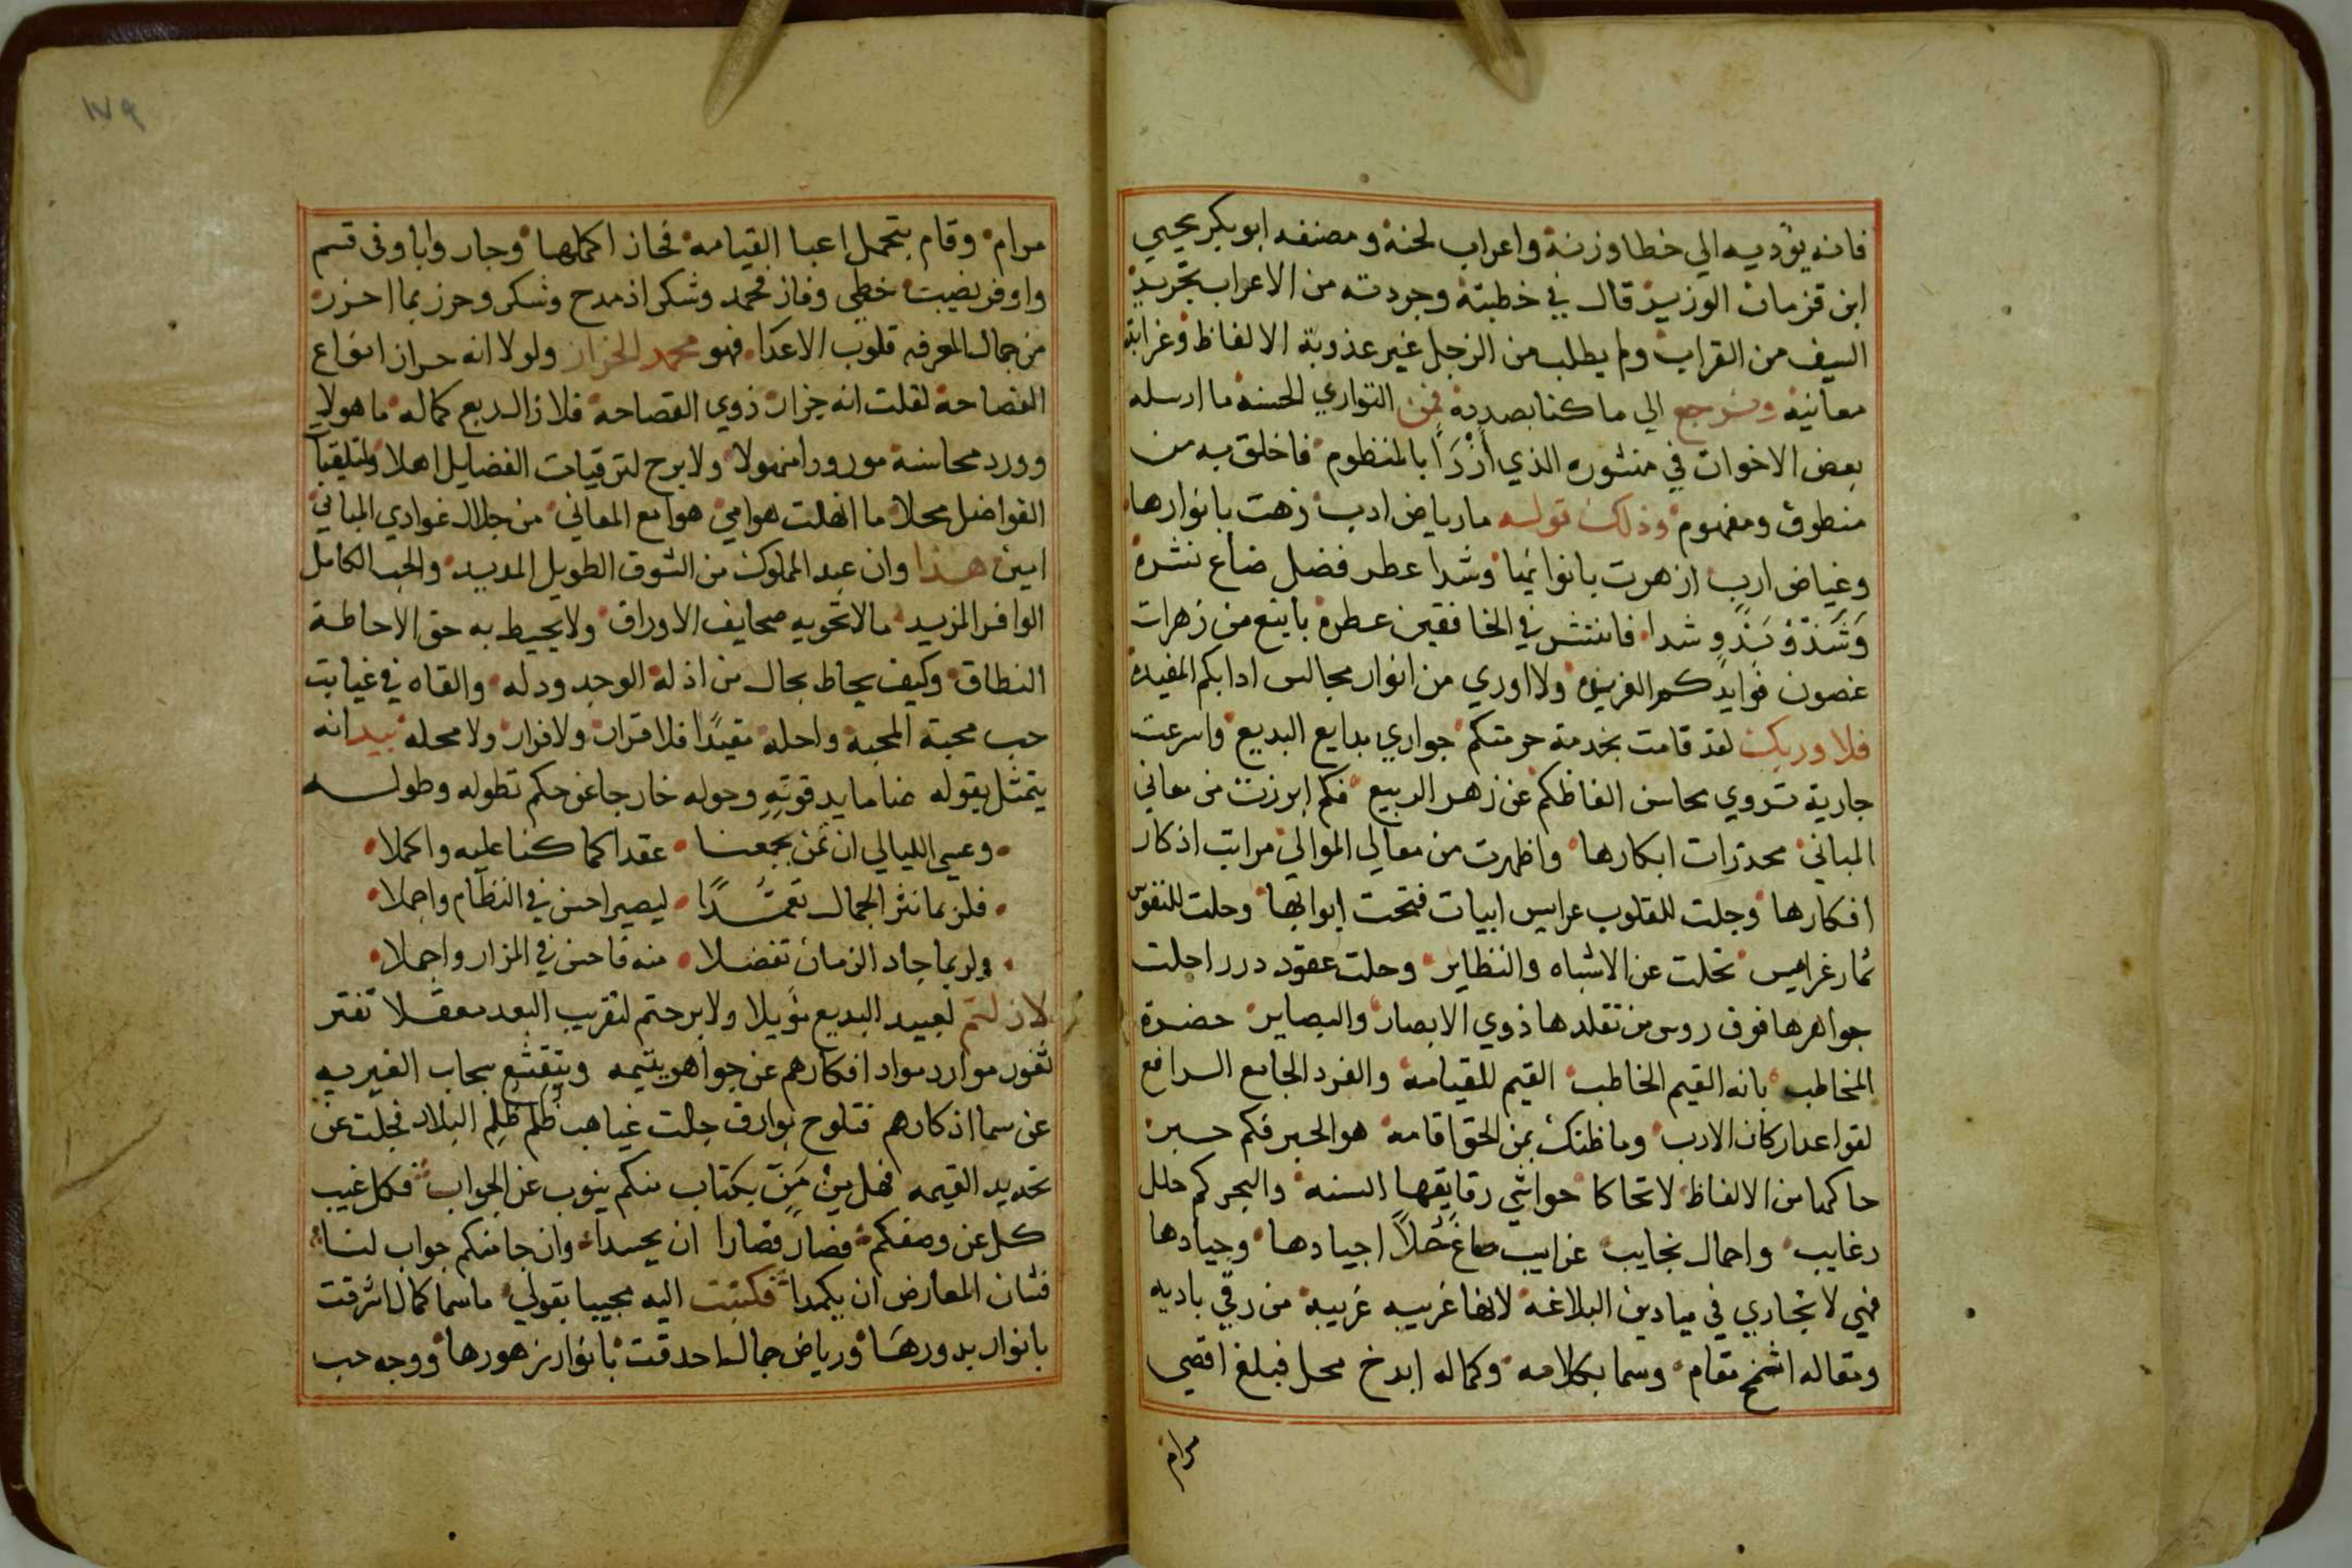 فانه يؤديه الي خطا وزنه واعراب لحنه ومصنفه ابو بكر يحيي
ابن قزمان الوزير قال في خطبته وجردته من الاعراب تجريد
السيف من القراب ولم يطلب من الزجل غير عذوبة الالفاظ وغرابة
معانيه ونرجع الي ما كنا بصدده فمن التواري الحسنه ما ارسله
بعض الاخوان في منثوره الذي أزْرَاً بالمنظوم فاخلق به من
منطوق ومفهوم وذلك قوله ما رياض ادب زهت بانوارها
وغياض ارب ازهرت بانوائها وشدا عطر فضل ضاع نشره
وشدا فانتشر في الخافقين عطره باينع من زهرات
غصون فوايدكم الفريده ولا اوري من انوار مجالس ادابكم المفيده
فلا وربك لقد قامت بخدمة حرمتكم جواري بدايع البديع واسرعت
جارية تروي محاسن الفاظكم عن زهر الربيع فكم ابرزت من معاني
المباني مخدرات ابكارها واظهرت من معالي الموالي مراتب اذكار
افكارها وجلت للقلوب عرايس ابيات فتحت ابوابها وحلت للنفوس
ثمار غرايس تخلت عن الاشباه والنظاير وحلت عقود درر احلت
جواهرها فوق روس من تقلدها ذوي الابصار والبصاير حضرة
المخاطب بانه القيم الخاطب القيم للقيامه والفرد الجامع الرافع
لقواعد اركان الادب وما ظنك بمن الحق اقامه هو الحبر فكم حبر
حاكها من الالفاظ لا تحاكا حواشي رقايقها السنه والبحر كم حلل
رغايب واحمال نجايب غرايب صاغ حُلاً اجيادها وجيادها
فهي لا تجاري في ميادين البلاغه لانها غريبه غريبه من رقي باديه
ومقاله اشمخ مقام وسما بكلامه وكماله ابدخ محل فبلغ اقصي
مرام
١٧٩
مرام وقام بتحمل اعبا القيامه فحاز اكملها وجار وابا وفي قسم
واوفر نصيب خطي وفاز فحمد وشكر اذ مدح وشكر وحرز بما احرز
من جمال المعرفه قلوب الاعدا فهو محمد الخزاز ولولا انه حراز انواع
الفصاحة لقلت انه خراز ذوي الفصاحه فلا زال ربع كماله ماهولا
وورد محاسنه مورودا منهولا ولا برح لترقيات الفضايل اهلا ولتلقيات
الفواضل محلا ما انهلت هوامي هوامع المعاني من خلال غوادي المباني
امين هذا وان عند المملوك من الشوق الطويل المديد والحب الكامل
الوافر المزيد ما لا تحويه صحايف الاوراق ولا يحيط به حق الاحاطة
النطاق وكيف يحاط بحال من اذله الوجد ودله والقاه في غيابت
جب محبة المحبة واحله مقيدًا فلا قرار ولا فرار ولا محله بيد انه
يتمثل بقوله خارجا عن حكم تطوله وطوله
وعسي الليالي ان تمن بجمعنا عقدا كما كنا عليه واكملا
فلربما نثر الجمال تعمُّدًا ليصير احسن في النظام واجملا
ولربما جاد الزمان تفضلا منه فاحسن في المزار واجملا
لا زلتم لعبيد البديع مويلا ولا برحتم لتقريب البعد معقلا تفتر
ثغور موارد مواد افكارهم عن جواهر يتيمه ويتقشع سحاب الغيريه
عن سما اذكارهم فتلوح بوارق جلت غياهب ظُلم ظُلم البلاد فجلت عن
تحديد القيمه فهل مِن مَنّ بكتاب منكم ينوب عن الجواب فكل غيب
كل عن وصفكم فصار قصارا ان يحسدا وان جا منكم جواب لنا
فشان المعارض ان يكمدا فكتبت اليه مجيبا بقولي ما سما كمال اشرقت
بانوار بدورها ورياض جمال احدقت بانوار زهورها ووجه حب